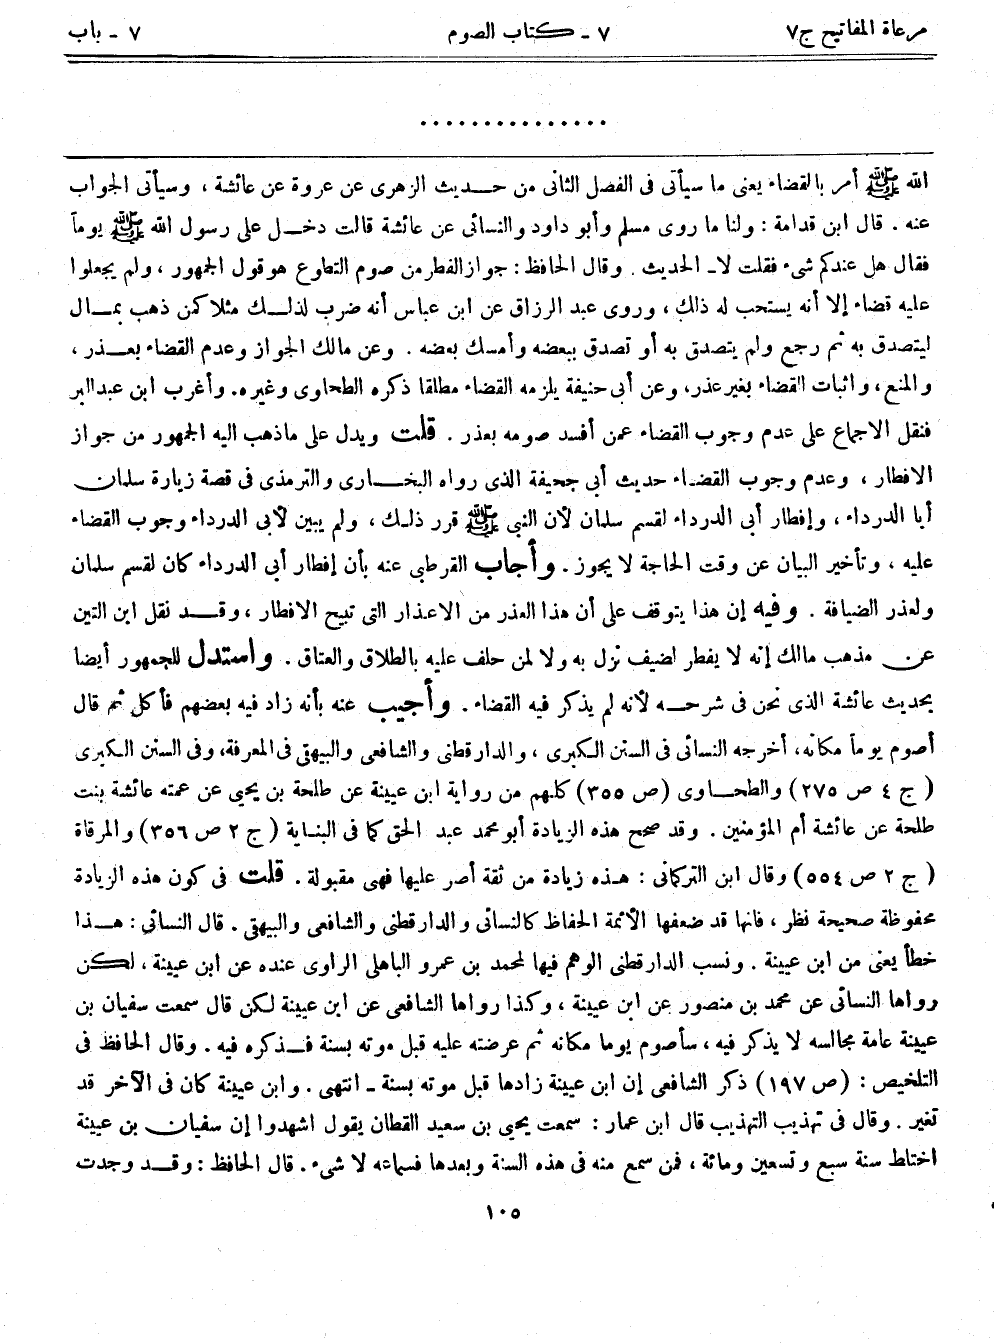 مرعاة المفاتيح ج٧
٧ - كتاب الصوم
٧ - باب
...............
الله ﷺ أمر بالقضاء يعنى ما سيأتى فى الفصل الثانى من حديث الزهرى عن عروة عن عائشة ، وسيأتى الجواب
عنه . قال ابن قدامة : ولنا ما روى مسلم وأبو داود والنسائى عن عائشة قالت دخل على رسول الله ﷺ يوماً
فقال هل عندكم شىء فقلت لا - الحديث . وقال الحافظ : جواز الفطر من صوم التطوع هو قول الجمهور ، ولم يجعلوا
عليه قضاء إلا أنه يستحب له ذلك ، وروى عبد الرزاق عن ابن عباس أنه ضرب لذلك مثلا كمن ذهب بمال
ليتصدق به ثم رجع ولم يتصدق به أو تصدق ببعضه وأمسك بعضه . وعن مالك الجواز وعدم القضاء بعذر ،
والمنع ، واثبات القضاء بغير عذر، وعن أبى حنيفة يلزمه القضاء مطلقا ذكره الطحاوى وغيره. وأغرب ابن عبد البر
فنقل الاجماع على عدم وجوب القضاء عمن أفسد صومه بعذر . قلت ويدل على ماذهب اليه الجمهور من جواز
الافطار ، وعدم وجوب القضاء حديث أبى جحيفة الذى رواه البخارى والترمذى فى قصة زيارة سلمان
أبا الدرداء ، وإفطار أبى الدرداء لقسم سلمان لأن النبى ﷺ قرر ذلك ، ولم يبين لأبى الدرداء وجوب القضاء
عليه ، وتأخير البيان عن وقت الحاجة لا يجوز . وأجاب القرطبى عنه بأن إفطار أبى الدرداء كان لقسم سلمان
ولعذر الضيافة . وفيه إن هذا يتوقف على أن هذا العذر من الاعذار التى تبيح الافطار ، وقد نقل ابن التين
عن مذهب مالك إنه لا يفطر لضيف نزل به ولا لمن حلف عليه بالطلاق والعتاق . واستدل للجمهور أيضا
بحديث عائشة الذى نحن فى شرحه لأنه لم يذكر فيه القضاء . وأجيب عنه بأنه زاد فيه بعضهم فأكل ثم قال
أصوم يوماً مكانه، أخرجه النسائى فى السنن الكبرى ، والدارقطنى والشافعى والبيهقى فى المعرفة، وفى السنن الكبرى
( ج ٤ ص ٢٧٥) والطحاوى (ص ٣٥٥) كلهم من رواية ابن عيينة عن طلحة بن يحيى عن عمته عائشة بنت
طلحة عن عائشة أم المؤمنين . وقد صحح هذه الزيادة أبو محمد عبد الحق كما فى البناية ( ج ٢ ص ٣٥٦) والمرقاة
( ج ٢ ص ٥٥٤) وقال ابن التركمانى : هذه زيادة من ثقة أصر عليها فهى مقبولة . قلت فى كون هذه الزيادة
محفوظة صحيحة نظر ، فانها قد ضعفها الأئمة الحفاظ كالنسائى والدارقطنى والشافعى والبيهقى . قال النسائى : هذا
خطأ يعنى من ابن عيينة . ونسب الدارقطنى الوهم فيها لمحمد بن عمرو الباهلى الراوى عنده عن ابن عيينة ، لكن
رواها النسائى عن محمد بن منصور عن ابن عيينة ، وكذا رواها الشافعى عن ابن عيينة لكن قال سمعت سفيان بن
عيينة عامة مجالسه لا يذكر فيه ، سأصوم يوما مكانه ثم عرضته عليه قبل موته بسنة فذكره فيه . وقال الحافظ فى
التلخيص : (ص ١٩٧) ذكر الشافعى إن ابن عيينة زادها قبل موته بسنة - انتهى . وابن عيينة كان فى الآخر قد
تغير . وقال فى تهذيب التهذيب قال ابن عمار : سمعت يحيى بن سعيد القطان يقول اشهدوا إن سفيان بن عيينة
اختاط سنة سبع وتسعين ومائة ، فمن سمع منه فى هذه السنة وبعدها فسماعه لا شىء . قال الحافظ : وقد وجدت
١٠٥